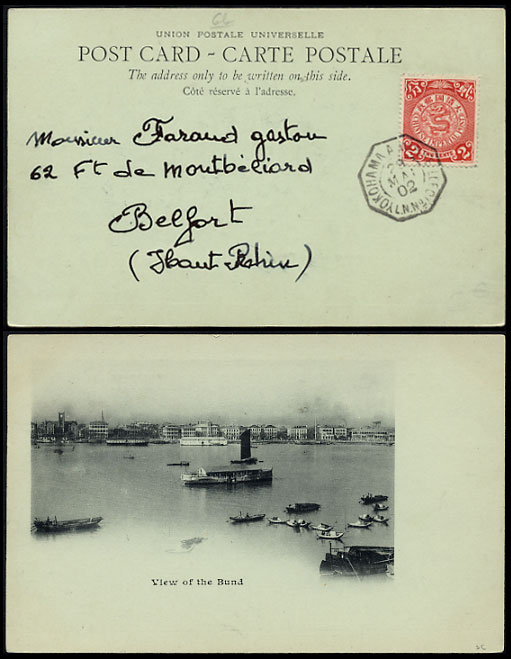 66
UNION POSTALE UNIVERSELLE
POST CARD - CARTE POSTALE
The address only to be written on this side.
Côté réservé à l'adresse.
Monsieur Faraud gaston
62 Ft de Montbéliard
Belfort
(Haut Rhin)
2 TWO CENTS 2
YOKOHAMA A
LN N
MAI
02
View of the Bund